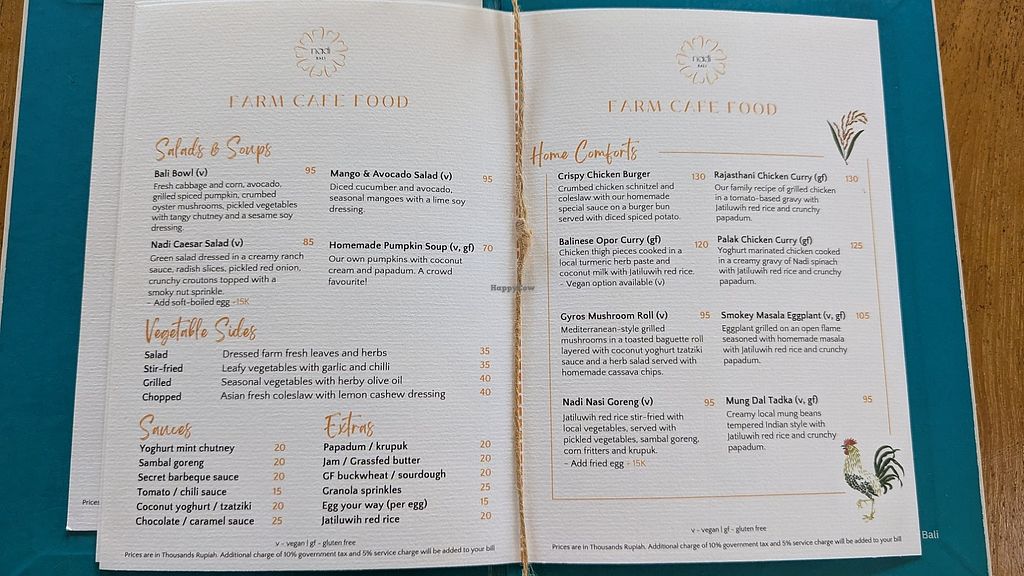 nadi
BALI
FARM CAFE FOOD
Salads & Soups
Bali Bowl (v) 95
Fresh cabbage and corn, avocado,
grilled spiced pumpkin, crumbed
oyster mushrooms, pickled vegetables
with tangy chutney and a sesame soy
dressing.
Mango & Avocado Salad (v) 95
Diced cucumber and avocado,
seasonal mangoes with a lime soy
dressing.
Nadi Caesar Salad (v) 85
Green salad dressed in a creamy ranch
sauce, radish slices, pickled red onion,
crunchy croutons topped with a
smoky nut sprinkle.
- Add soft-boiled egg -15K
Homemade Pumpkin Soup (v, gf) 70
Our own pumpkins with coconut
cream and papadum. A crowd
favourite!
Vegetable Sides
Salad Dressed farm fresh leaves and herbs 35
Stir-fried Leafy vegetables with garlic and chilli 35
Grilled Seasonal vegetables with herby olive oil 40
Chopped Asian fresh coleslaw with lemon cashew dressing 40
Sauces
Yoghurt mint chutney 20
Sambal goreng 20
Secret barbeque sauce 20
Tomato / chili sauce 15
Coconut yoghurt / tzatziki 20
Chocolate / caramel sauce 25
Extras
Papadum / krupuk 20
Jam / Grassfed butter 20
GF buckwheat / sourdough 20
Granola sprinkles 25
Egg your way (per egg) 15
Jatiluwih red rice 20
v - vegan | gf - gluten free
Prices are in Thousands Rupiah. Additional charge of 10% government tax and 5% service charge will be added to your bill
Prices
nadi
BALI
FARM CAFE FOOD
Home Comforts
Crispy Chicken Burger 130
Crumbed chicken schnitzel and
coleslaw with our homemade
special sauce on a burger bun
served with diced spiced potato.
Rajasthani Chicken Curry (gf) 130
Our family recipe of grilled chicken
in a tomato-based gravy with
Jatiluwih red rice and crunchy
papadum.
Balinese Opor Curry (gf) 120
Chicken thigh pieces cooked in a
local turmeric herb paste and
coconut milk with Jatiluwih red rice.
- Vegan option available (v)
Palak Chicken Curry (gf) 125
Yoghurt marinated chicken cooked
in a creamy gravy of Nadi spinach
with Jatiluwih red rice and crunchy
papadum.
Gyros Mushroom Roll (v) 95
Mediterranean-style grilled
mushrooms in a toasted baguette roll
layered with coconut yoghurt tzatziki
sauce and a herb salad served with
homemade cassava chips.
Smokey Masala Eggplant (v, gf) 105
Eggplant grilled on an open flame
seasoned with homemade masala
with Jatiluwih red rice and crunchy
papadum.
Nadi Nasi Goreng (v) 95
Jatiluwih red rice stir-fried with
local vegetables, served with
pickled vegetables, sambal goreng,
corn fritters and krupuk.
- Add fried egg - 15K
Mung Dal Tadka (v, gf) 95
Creamy local mung beans
tempered Indian style with
Jatiluwih red rice and crunchy
papadum.
v - vegan | gf - gluten free
Prices are in Thousands Rupiah. Additional charge of 10% government tax and 5% service charge will be added to your bill
Bali
HappyCow